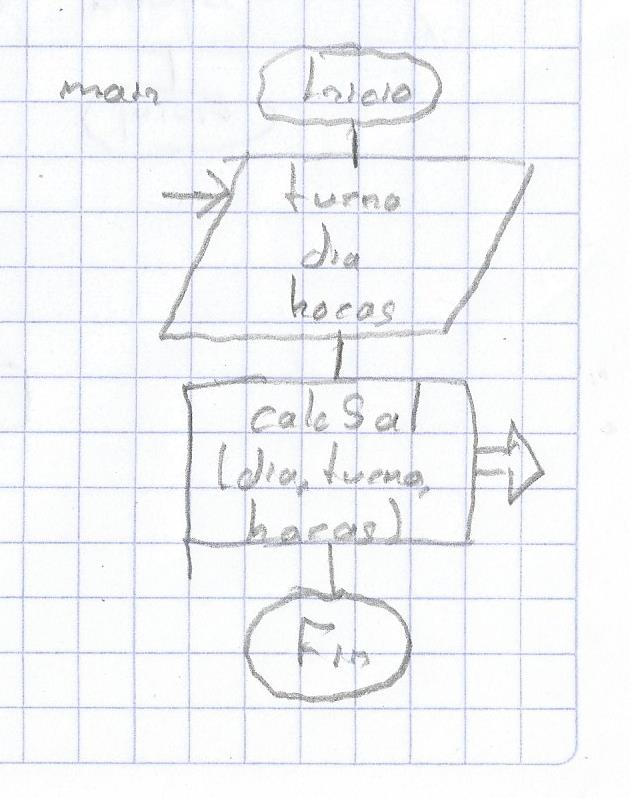 main
Inicio
turno
dia
horas
calcSal
(dia, turno,
horas)
Fin